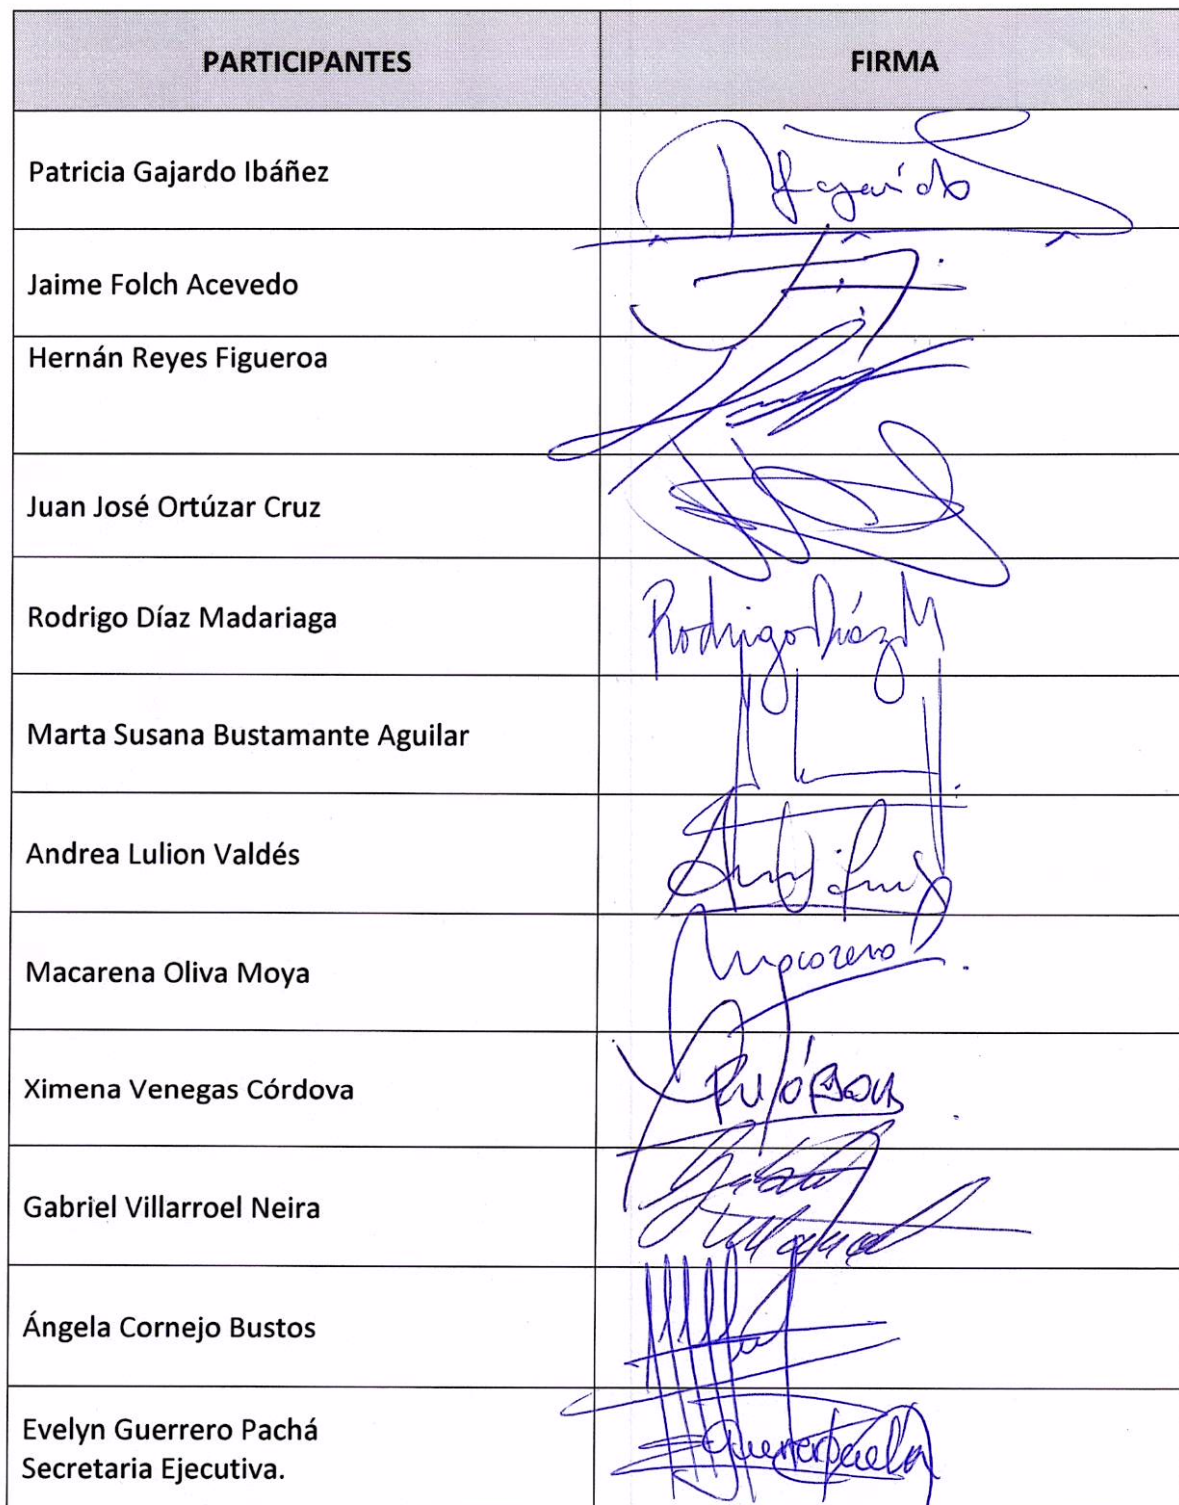 PARTICIPANTES FIRMA
Patricia Gajardo Ibáñez
Jaime Folch Acevedo
Hernán Reyes Figueroa
Juan José Ortúzar Cruz
Rodrigo Díaz Madariaga Rodrigo Díaz M
Marta Susana Bustamante Aguilar
Andrea Lulion Valdés
Macarena Oliva Moya
Ximena Venegas Córdova
Gabriel Villarroel Neira
Ángela Cornejo Bustos
Evelyn Guerrero Pachá
Secretaria Ejecutiva.